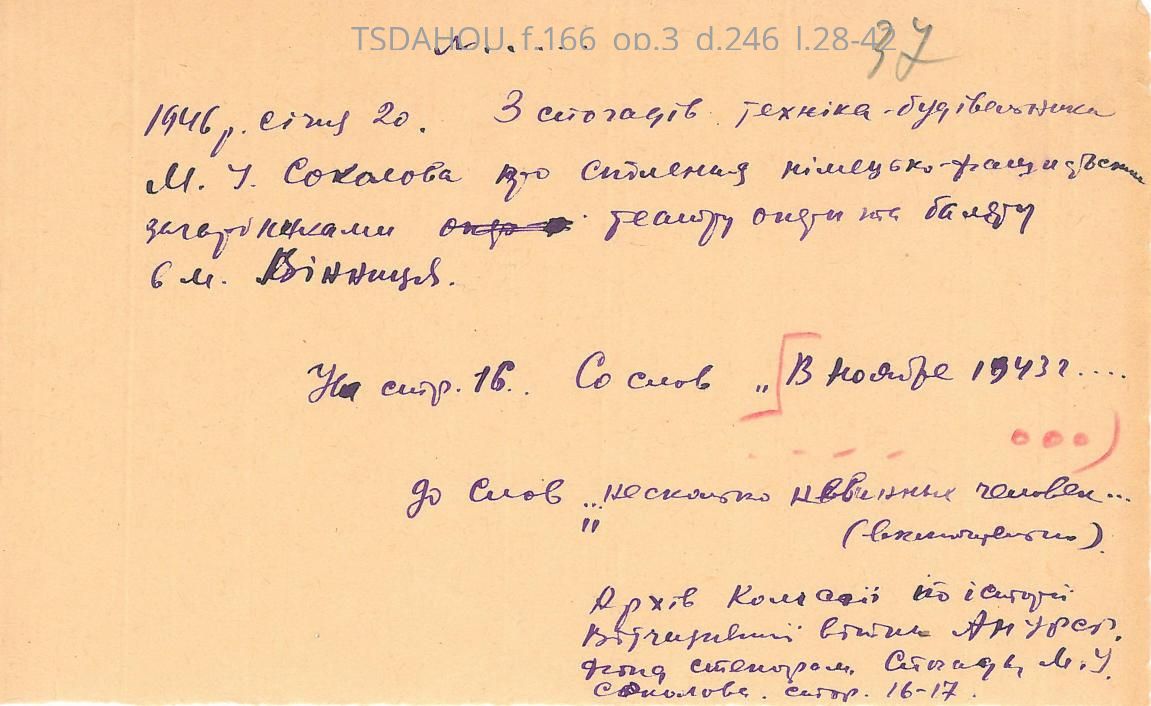 TSDAHOU f.166 op.3 d.246 l.28-42
37
№ . . . . .
1946 р. січня 20. З спогадів техніка-будівельника
М. У. Соколова про спалення німецько-фашистськими
загарбниками театру опери та балету
в м. Вінниця.
На стр. 16. Со слов „В ноябре 1943 г....
до слов „несколько невинных человек...
(включительно).
Архів Комісії по історії
Вітчизняної війни АН УРСР.
Фонд стенограм. Спогади М. У.
Соколова. стор. 16-17.